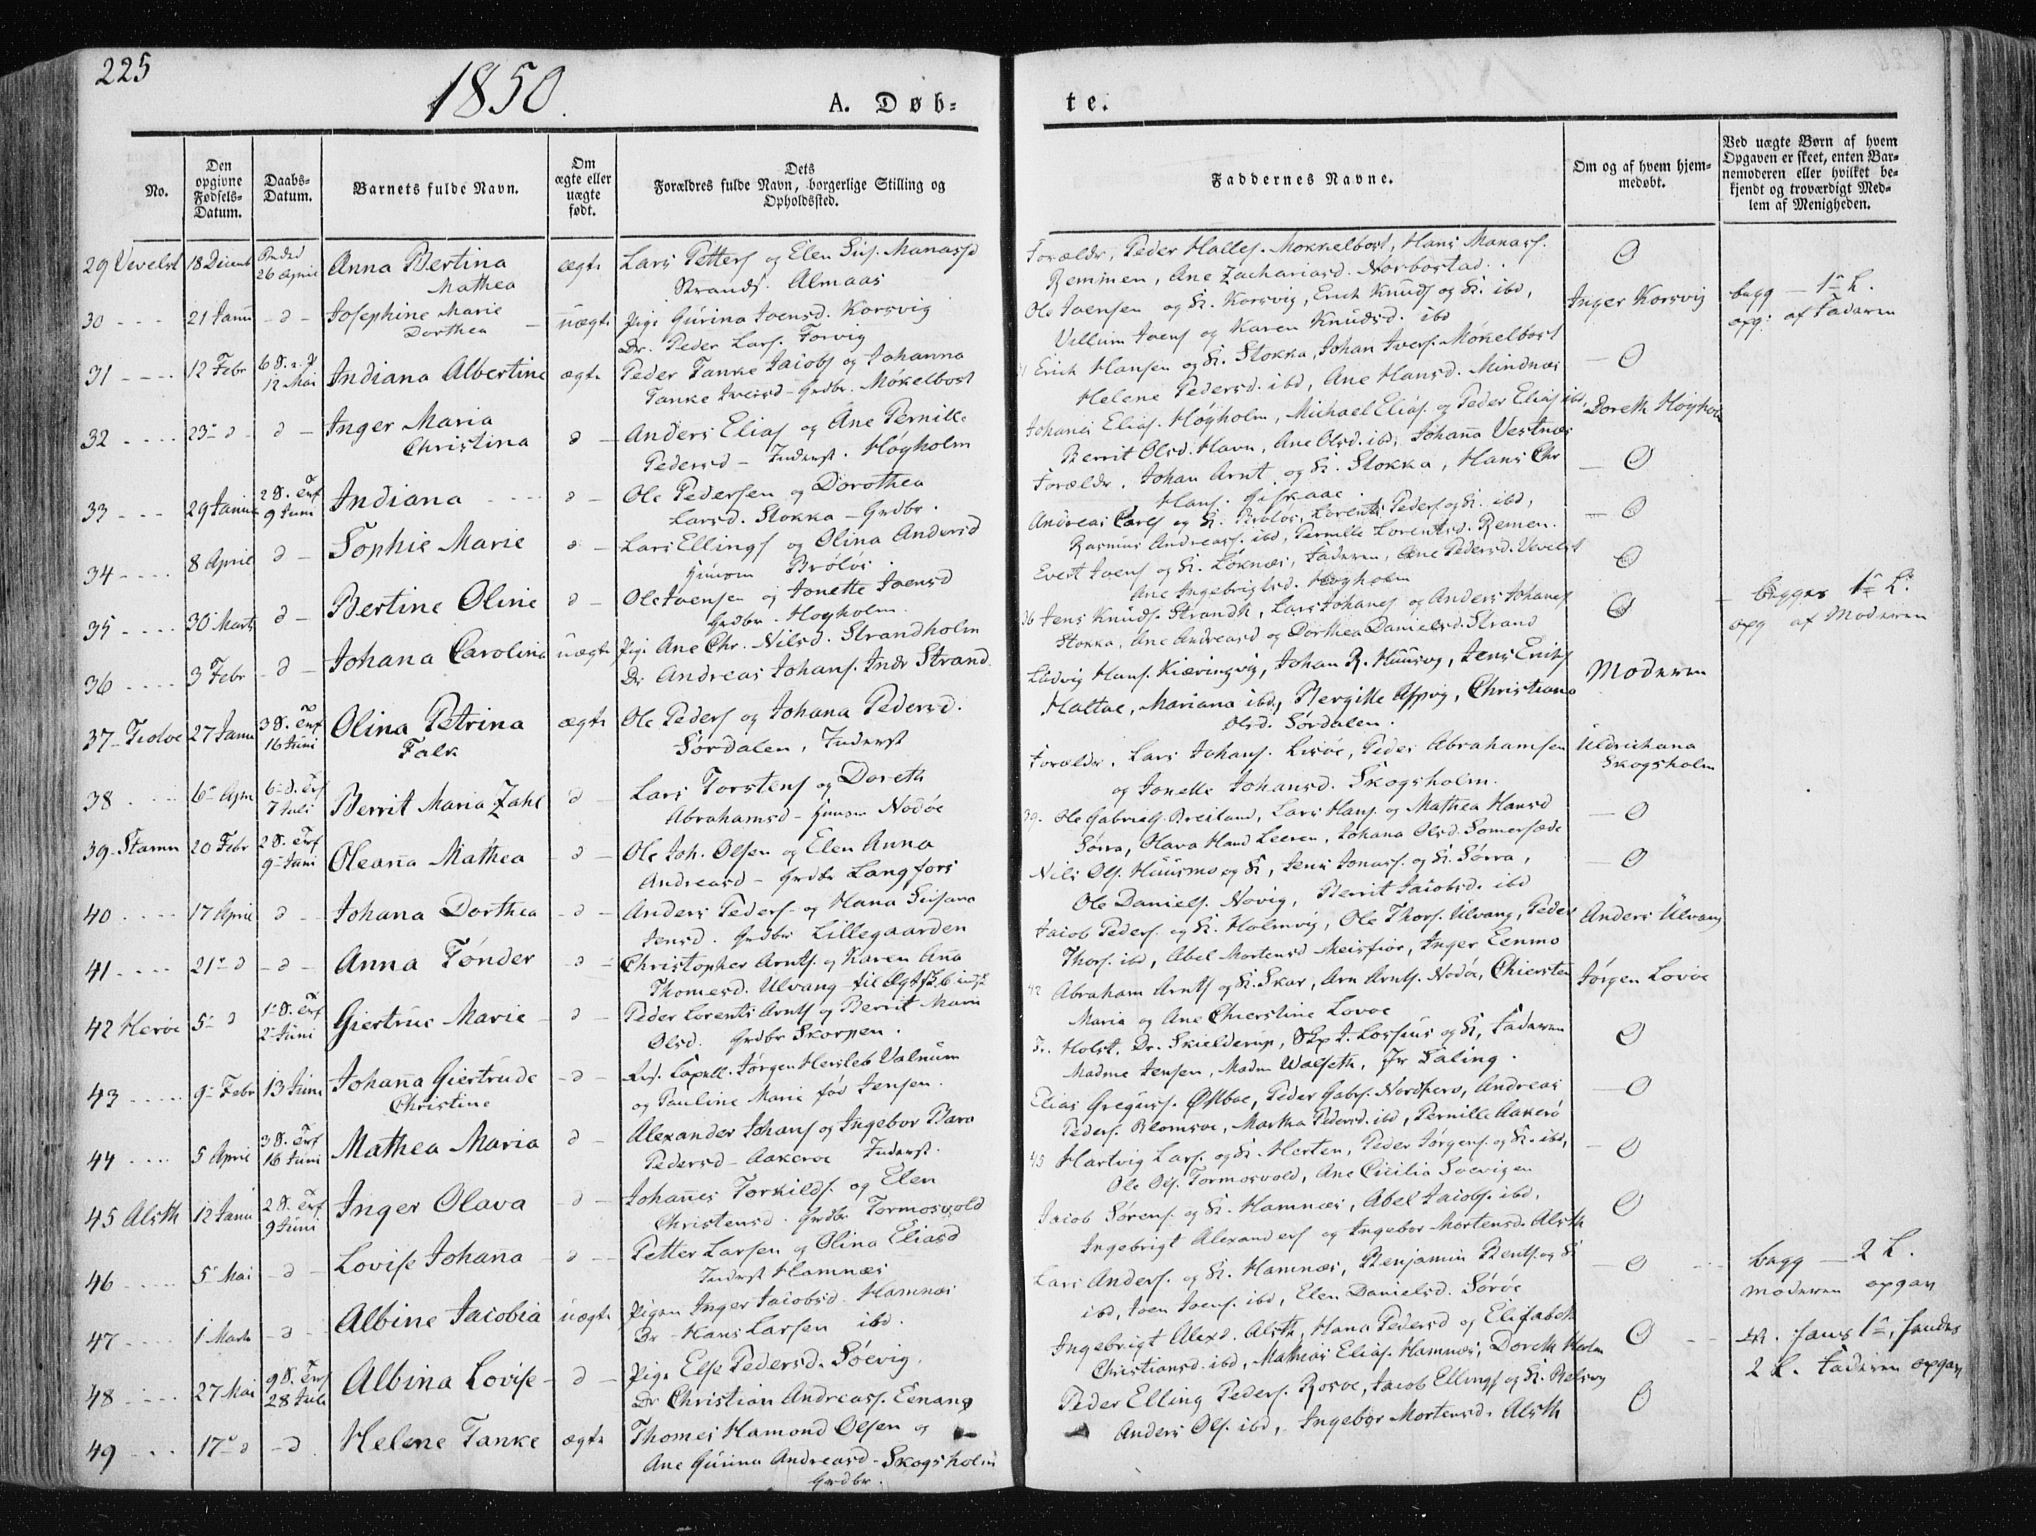 225
1850.
A. Døb-
te.
No.
Den opgivne Fødsels-Datum.
Daabs-Datum.
Barnets fulde Navn.
Om ægte eller uægte født.
Dets Forældres fulde Navn, borgerlige Stilling og Opholdssted.
Faddernes Navne.
Om og af hvem hjemmedøbt.
Ved uægte Børn af hvem Opgaven er skeet, enten Barnemoderen eller hvilket bekjendt og troværdigt Medlem af Menigheden.
29 Vevelst 18 Decemb 26 April Anna Bertina ægte Lars Petters og Elen Sus. Manassd
Mathea Strands. Almaas
Forældr, Peder Halles. Mokkelbost, Hans Manass.
Remmen, Ane Zachariasd. Norbostad. O
30 21 Janu d Josephine Marie uægte Pige Gurina Ivensd. Korsvig
Dorthea Dr. Peder Lars. Forvig
Ole Ivensen og K. Korsvig, Erich Knuds og K. ibd, Inger Korsvig begg 1ste L.
Villum Ivens og Karen Knudsd. ibd opg: af Faderen
31 12 Febr 12 Mai Indiana Albertine ægte Peder Tanke Jacobs og Johanna
Tanke Iversd Grdbr. Møkelbost
Erich Hansen og K. Stokka, Johan Ivers. Møkelbost O
Helene Pedersd. ibd, Ane Hansd. Mindnæs
32 23 d d Inger Maria d Anders Elias og Ane Pernille
Christina Pedersd Inderst. Høgholm
Johanes Elias. Høgholm, Michael Elias. og Peder Elias ibd, Doreth Høgholm
Berrit Olsd. Havn, Ane Olsd. ibd, Johanna Vestnæs
33 29 Janua 2 S. Trf 9 Juni Indiana d Ole Pedersen og Dorothea
Larsd. Stokka Grdbr.
Forældr. Johan Arnt. og K. Stokka, Hans Chr O
Hans.
34 8 April d Sophie Marie d Lars Ellings og Olina Andersd
Husm Broløs.
Andreas Carls og K. Broløs, Lorents Peders og K. ibd, O
Rasmus Andreass. ibd, Pernille Lorentsd. Remen.
35 30 Marts d Bertine Oline d Ole Ivensen og Jonette Ivensd
Grdbr. Høgholm.
Evert Ivens og K. Loknæs, Faderen, Ane Pedersd. Vevelst O
Ane Ingebrigtsd. Høgholm
36 3 Febr d Johana Carolina uægte Pige Ane Chr. Nilsd. Strandholm
Dr Andreas Johans. Indr Strand
Jens Knuds. Strandh, Lars Johanes og Anders Johanes O begges 1ste L.
Stokka, Ane Andreasd og Dorthea Danielsd. Strand opg af Moderen
37 Tioløe 27 Janu 3 S. Trf 16 Juni Olina Petrina ægte Ole Peders og Johana Pedersd.
Falk Sørdalen, Inderst
Ludvig Hans. Kiæringvig, Johan R. Huusvg, Jens Eriks Moderen
Haltøe, Mariana ibd, Bergitte Aspvig, Christiana
Olsd. Sørdalen.
38 6 Apr 6 S. Trf 7 Juli Berrit Maria Zahl d Lars Torstens og Doreth
Abrahamsd Husm Nodøe
Forældr, Lars Johans. Lisøe, Peder Abrahamsen Uldrichana
og Jonelle Johansd. Skogsholm. Skogsholm
39 Stamn 20 Febr 2 S. Trf 9 Juni Oleana Mathea d Ole Joh. Olsen og Elen Anna
Andreasd Grdbr Langfors
39. Ole Gabriels. Breiland, Lars Hans. og Mathea Hansd O
Sørra, Olava Leeren, Johana Olsd. Somersæde
40 17 April d Johana Dorthea d Anders Peders og Hana Susana
Jensd. Grdbr Lillegaarden
Nils Ols. Huusmo og K, Jens Jonass. og K. Sørra, O
Ole Daniels. Novig, Berrit Jacobsd. ibd
41 21 d d Anna Tønder d Christopher Arnts. og Karen Ana
Thomesd. Ulvang
Jacob Peders. og K. Holmvig, Ole Thors. Ulvang, Peder Anders Ulvang
Thors. ibd, Abel Mortensd Meisfior, Inger Eenmo
42 Herøe 5 d 1 S. Trf 2 Juni Giertrue Marie d Peder Lorents Arnts og Berrit Maria
Olsd. Grdbr Skorpen.
42 Abraham Arnts og K. Skar, Arn Arnts. Nodøe, Chiersten Jørgen Lovøe
Maria og Ane Chierstine Lovøe
43 9 Febr 13 Juni Johana Giertrude d Res. Capell. Jørgen Hersleb Valnum
Christine og Pauline Marie fød Jensen.
Fr. Holst, Dr. Skielderup, Skp J. Lossius og K, Faderen O
Madme Jensen, Madm Walseth, Jfr Saling.
44 5 April 3 S. Trf 16 Juni Mathea Maria d Alexander Johans og Ingebor Bara
Pedersd Aakerøe Inderst.
Elias Greguss. Østbøe, Peder Gabrs. Nordherø, Andreas O
Peders. Blomsøe, Martha Pedersd. ibd, Pernille Aakerø
45 Alsth 12 Janu 2 S. Trf 9 Juni Inger Olava d Johanes Torkilds. og Elen
Christensd. Grdbr Tormosvold
45 Hartvig Lars. og K. Herten, Peder Jørgens. og K. ibd, O
Ole Ols. Tormosvold, Ane Cicilia Søevigen
46 5 Mai d Lovise Johana d Petter Larsen og Olina Eliasd
Inderst Hamnæs
Jacob Sørens. og K. Hamnæs, Abel Jacobs. ibd, O
Ingebrigt Alexanders og Ingebor Mortensd. Alsth
47 1 Marts d Albine Jacobia uægte Pigen Inger Jacobsd Hamnæs
Dr Hans Larsen ibd.
Lars Anders. og K. Hamnæs, Benjamin Bents og K O begg 2 L.
ibd, Ioen Joens. ibd, Elen Danielsd. Sørøe moderen opgav
48 27 Mai 9 S. Trf 28 Juli Albina Lovise d Pige Else Pedersd. Søevig,
Dr Christian Andreass. Eenang
Ingebrigt Alexd. Alsth, Hana Pedersd og Elisabeth O hans 1ste, hendes
Christiansd. ibd, Mathias Elias. Hamnæs, Doreth Herten 2 L. Faderen opgav
49 17 d d Helene Tanke ægte Thomes Hamond Olsen og
Ane Gurina Andreasd Skogsholm
Grdbr.
Peder Elling Peders. Rosøe, Jacob Ellings og K. Belsvog O
Anders Ols. ibd, Ingebor Mortensd. Alsth